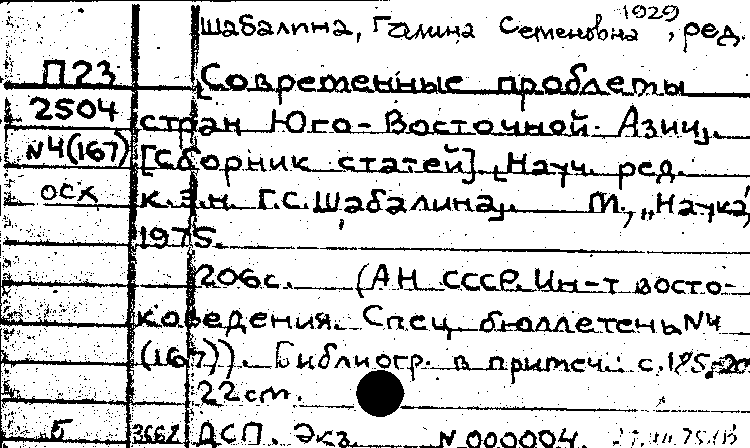 1929
Шабалина, Галина Семеновна, ред.
П23
Современные проблемы
2504
стран Юго-Восточной Азии.
№4(167)
[Сборник статей]. Науч. ред.
осх
к.э.н. Г.С.Шабалина. М., „Наука",
1975.
206с. (АН СССР. Ин-т восто-
коведения. Спец. бюллетень №4
(167)). Библиогр. в примеч.: с.185-20
22см.
Б 3662 ДСП. Экз. №000004.